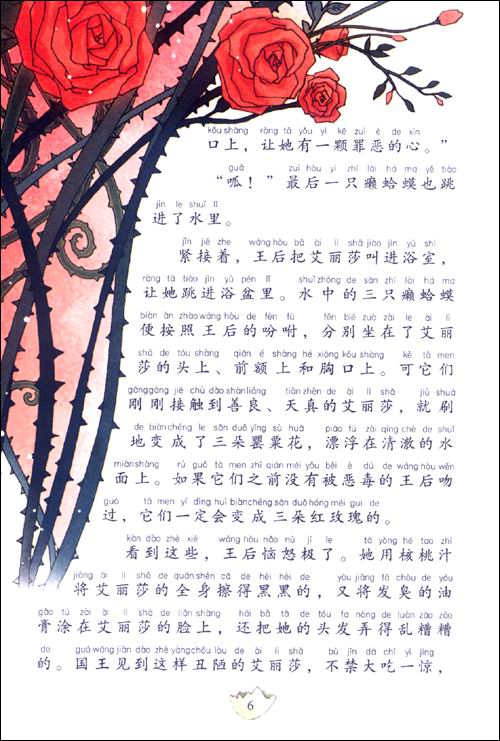 kǒu shàng ràng tā yǒu yì kē zuì è de xīn
口上，让她有一颗罪恶的心。”
guā zuì hòu yì zhī lài há ma yě tiào
“呱！”最后一只癞蛤蟆也跳
jìn le shuǐ lǐ
进了水里。
jǐn jiē zhe wáng hòu bǎ ài lì shā jiào jìn yù shì
紧接着，王后把艾丽莎叫进浴室，
ràng tā tiào jìn yù pén lǐ shuǐ zhōng de sān zhī lài há ma
让她跳进浴盆里。水中的三只癞蛤蟆
biàn àn zhào wáng hòu de fēn fù fēn bié zuò zài le ài lì
便按照王后的吩咐，分别坐在了艾丽
shā de tóu shàng qián é shàng hé xiōng kǒu shàng kě tā men
莎的头上、前额上和胸口上。可它们
gāng gāng jiē chù dào shàn liáng tiān zhēn de ài lì shā jiù shuā
刚刚接触到善良、天真的艾丽莎，就刷
de biàn chéng le sān duǒ yīng sù huā piāo fú zài qīng chè de shuǐ
地变成了三朵罂粟花，漂浮在清澈的水
miàn shàng rú guǒ tā men zhī qián méi yǒu bèi è dú de wáng hòu wěn
面上。如果它们之前没有被恶毒的王后吻
guò tā men yí dìng huì biàn chéng sān duǒ hóng méi gui de
过，它们一定会变成三朵红玫瑰的。
kàn dào zhè xiē wáng hòu nǎo nù jí le tā yòng hé tao zhī
看到这些，王后恼怒极了。她用核桃汁
jiāng ài lì shā de quán shēn cā de hēi hēi de yòu jiāng fā chòu de yóu
将艾丽莎的全身擦得黑黑的，又将发臭的油
gāo tú zài ài lì shā de liǎn shàng hái bǎ tā de tóu fa nòng de luàn zāo zāo
膏涂在艾丽莎的脸上，还把她的头发弄得乱糟糟
de guó wáng jiàn dào zhè yàng chǒu lòu de ài lì shā bù jīn dà chī yì jīng
的。国王见到这样丑陋的艾丽莎，不禁大吃一惊，
6